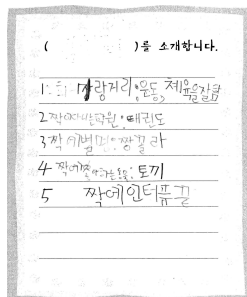 ( )를 소개합니다.
1 자랑거리:운동, 체육을잘함
2 짝이다닌학원:태권도
3 짝에별명:짱꼴라
4 짝에좋아하는동물:토끼
5 짝에인터뷰끝